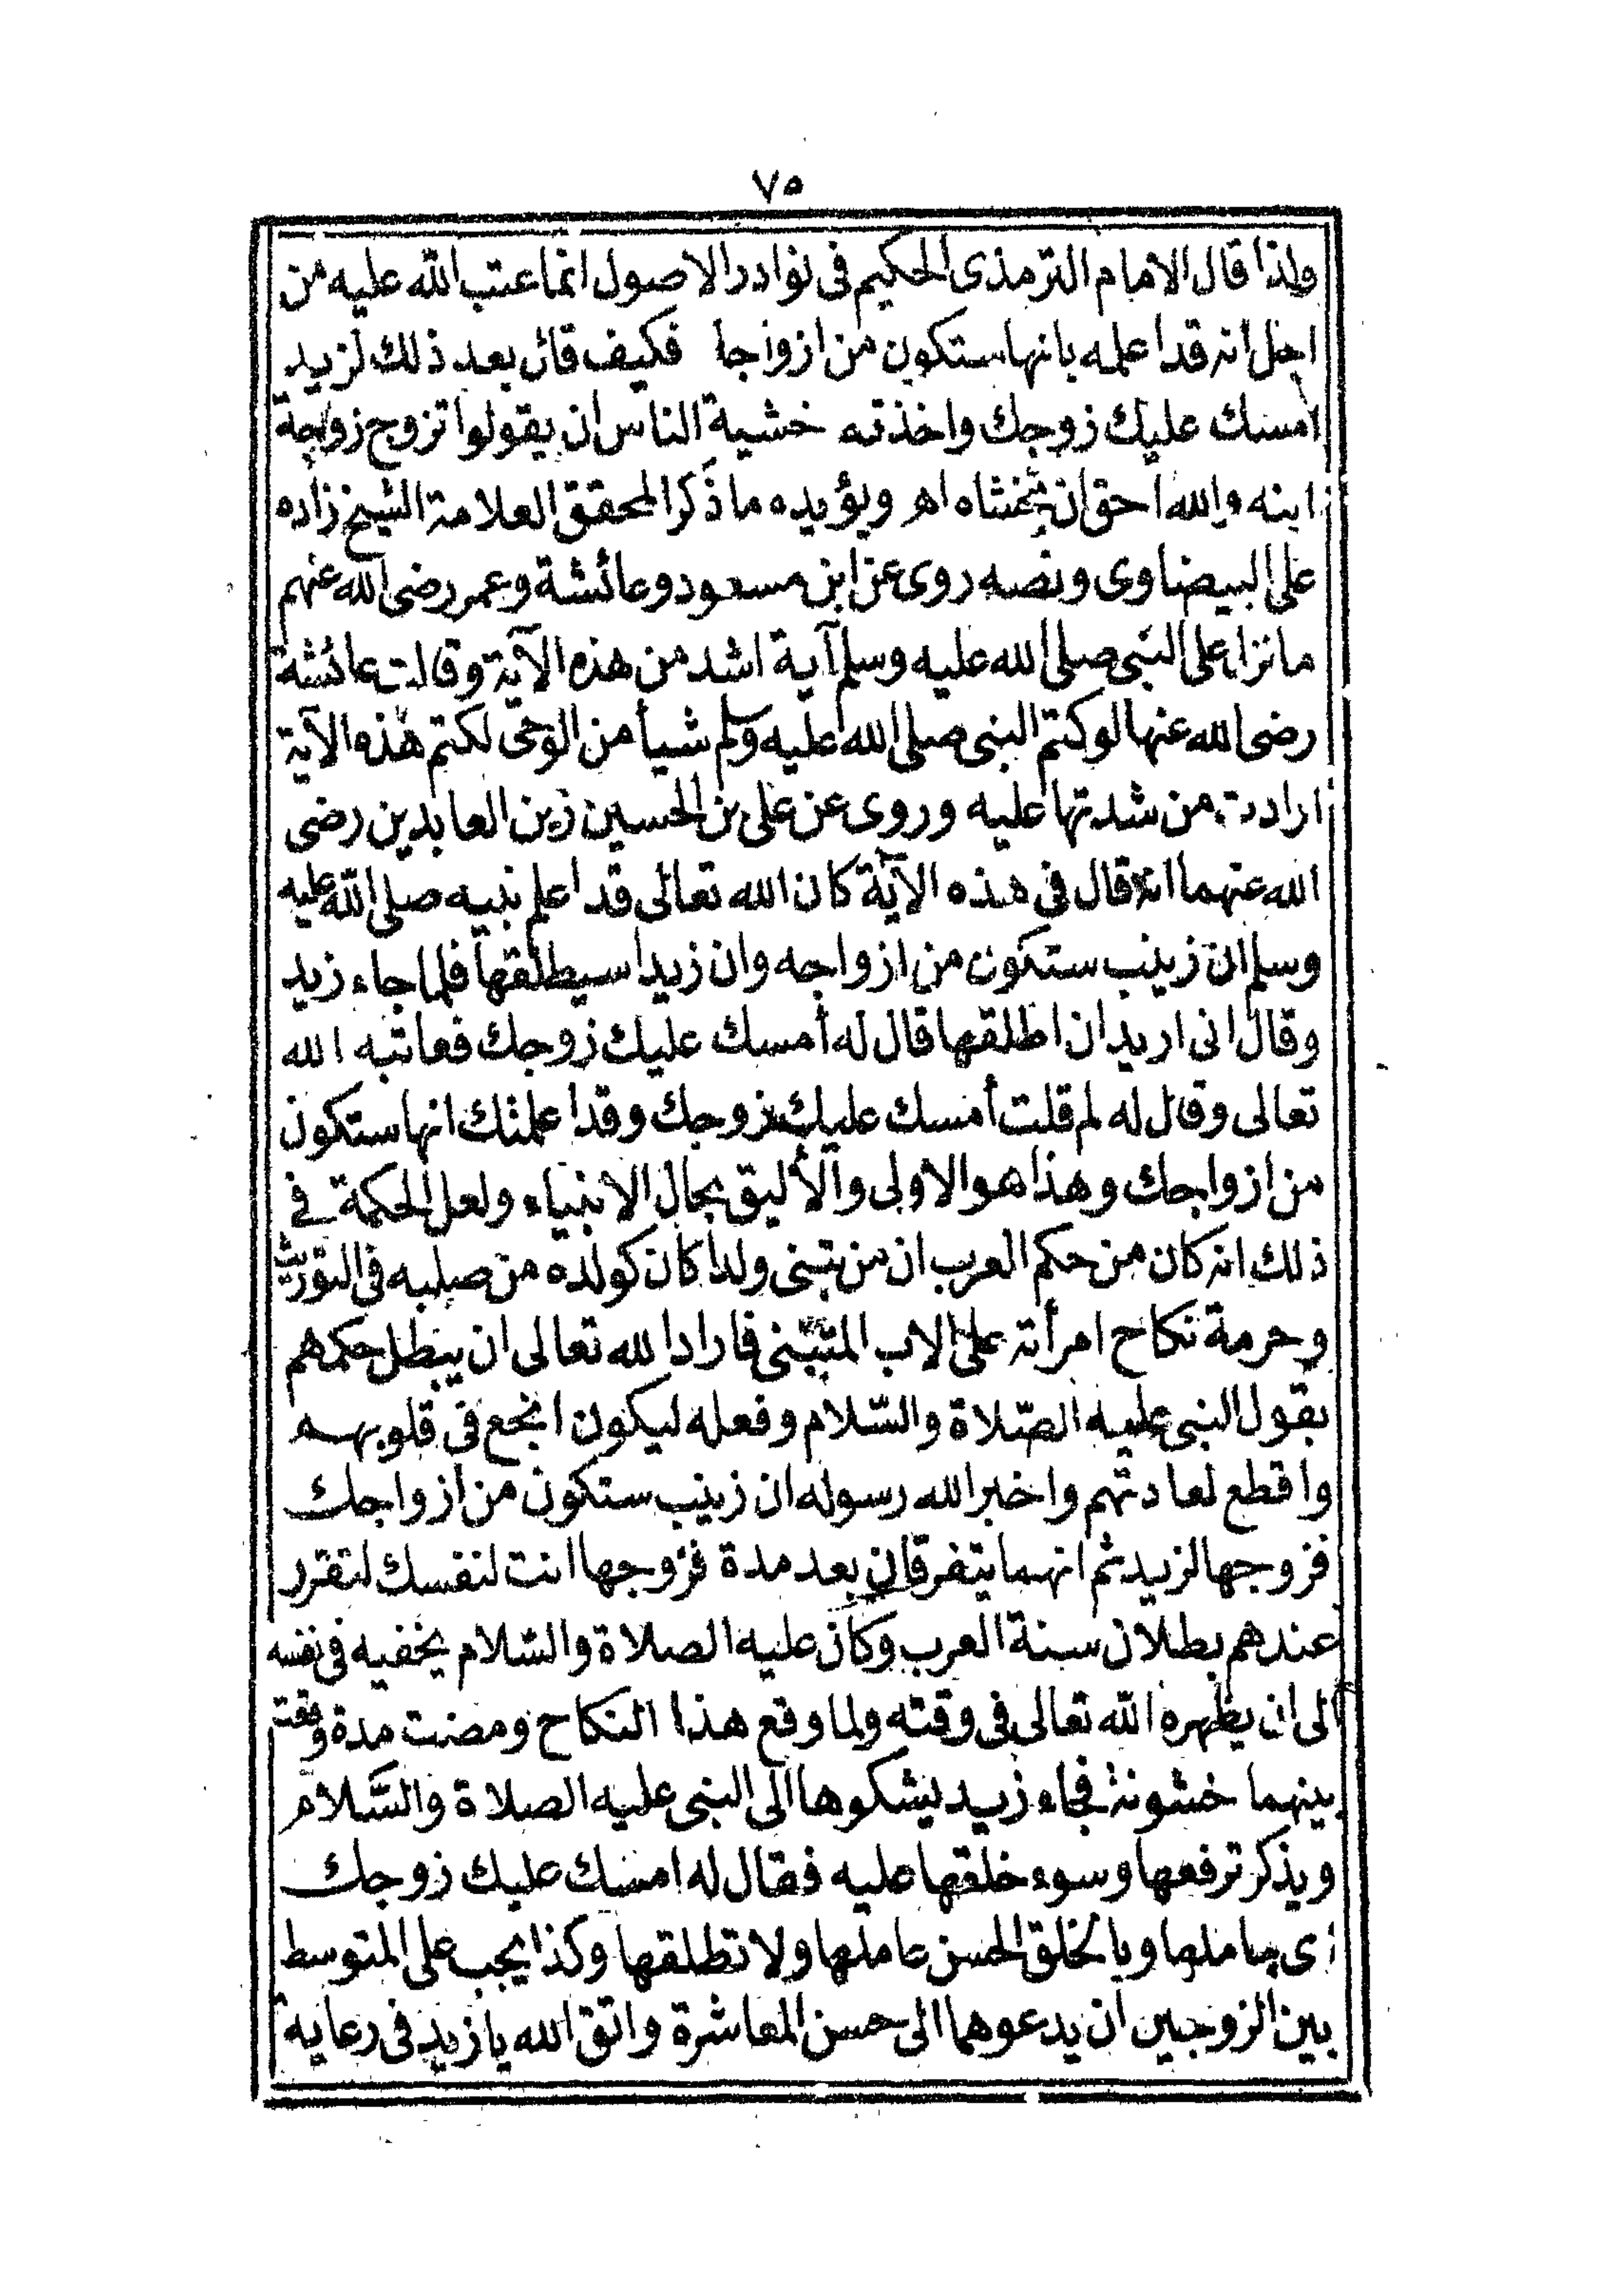 ٧٥
ولذا قال الامام الترمذى الحكيم فى نوادر الاصول انما عتب الله عليه من
اجل انه قد اعلمه بانها ستكون من ازواجا فكيف قال بعد ذلك لزيد
امسك عليك زوجك واخذته خشية الناس ان يقولوا تزوج زوجة
ابنه والله احق ان يخشاه اهـ ويؤيده ما ذكر المحقق العلامة الشيخ زاده
على البيضاوى ونصه روى عن ابن مسعود وعائشة وعمر رضى الله عنهم
ما نزل على النبى صلى الله عليه وسلم آية اشد من هذه الآية وقالت عائشة
رضى الله عنها لو كتم النبى صلى الله عليه وسلم شيأ من الوحى لكتم هذه الآية
ارادت من شدتها عليه وروى عن على بن الحسين زين العابدين رضى
الله عنهما انه قال فى هذه الآية كان الله تعالى قد اعلم نبيه صلى الله عليه
وسلم ان زينب ستكون من ازواجه وان زيدا سيطلقها فلما جاء زيد
وقال انى اريد ان اطلقها قال له أمسك عليك زوجك فعاتبه الله
تعالى وقال له لم قلت أمسك عليك زوجك وقد اعلمتك انها ستكون
من ازواجك وهذا هو الاولى والأليق بحال الانبياء ولعل الحكمة فى
ذلك انه كان من حكم العرب ان من تبنى ولدا كان كولده من صلبه فى التوريث
وحرمة نكاح امرأته على الاب المتبنى فاراد الله تعالى ان يبطل حكمهم
بقول النبى عليه الصّلاة والسّلام وفعله ليكون انجع فى قلوبهم
واقطع لعادتهم واخبر الله رسوله ان زينب ستكون من ازواجك
فزوجها لزيد ثم انهما يتفرقان بعد مدة فزوجها انت لنفسك لتقرر
عندهم بطلان سنة العرب وكان عليه الصلاة والسّلام يخفيه فى نفسه
الى ان يظهره الله تعالى فى وقته ولما وقع هذا النكاح ومضت مدة وقعت
بينهما خشونة فجاء زيد يشكوها الى النبى عليه الصلاة والسَّلام
ويذكر ترفعها وسوء خلقها عليه فقال له امسك عليك زوجك
اى جاملها وبالخلق الحسن عاملها ولا تطلقها وكذا يجب على المتوسط
بين الزوجين ان يدعوهما الى حسن المعاشرة واتق الله يا زيد فى رعاية